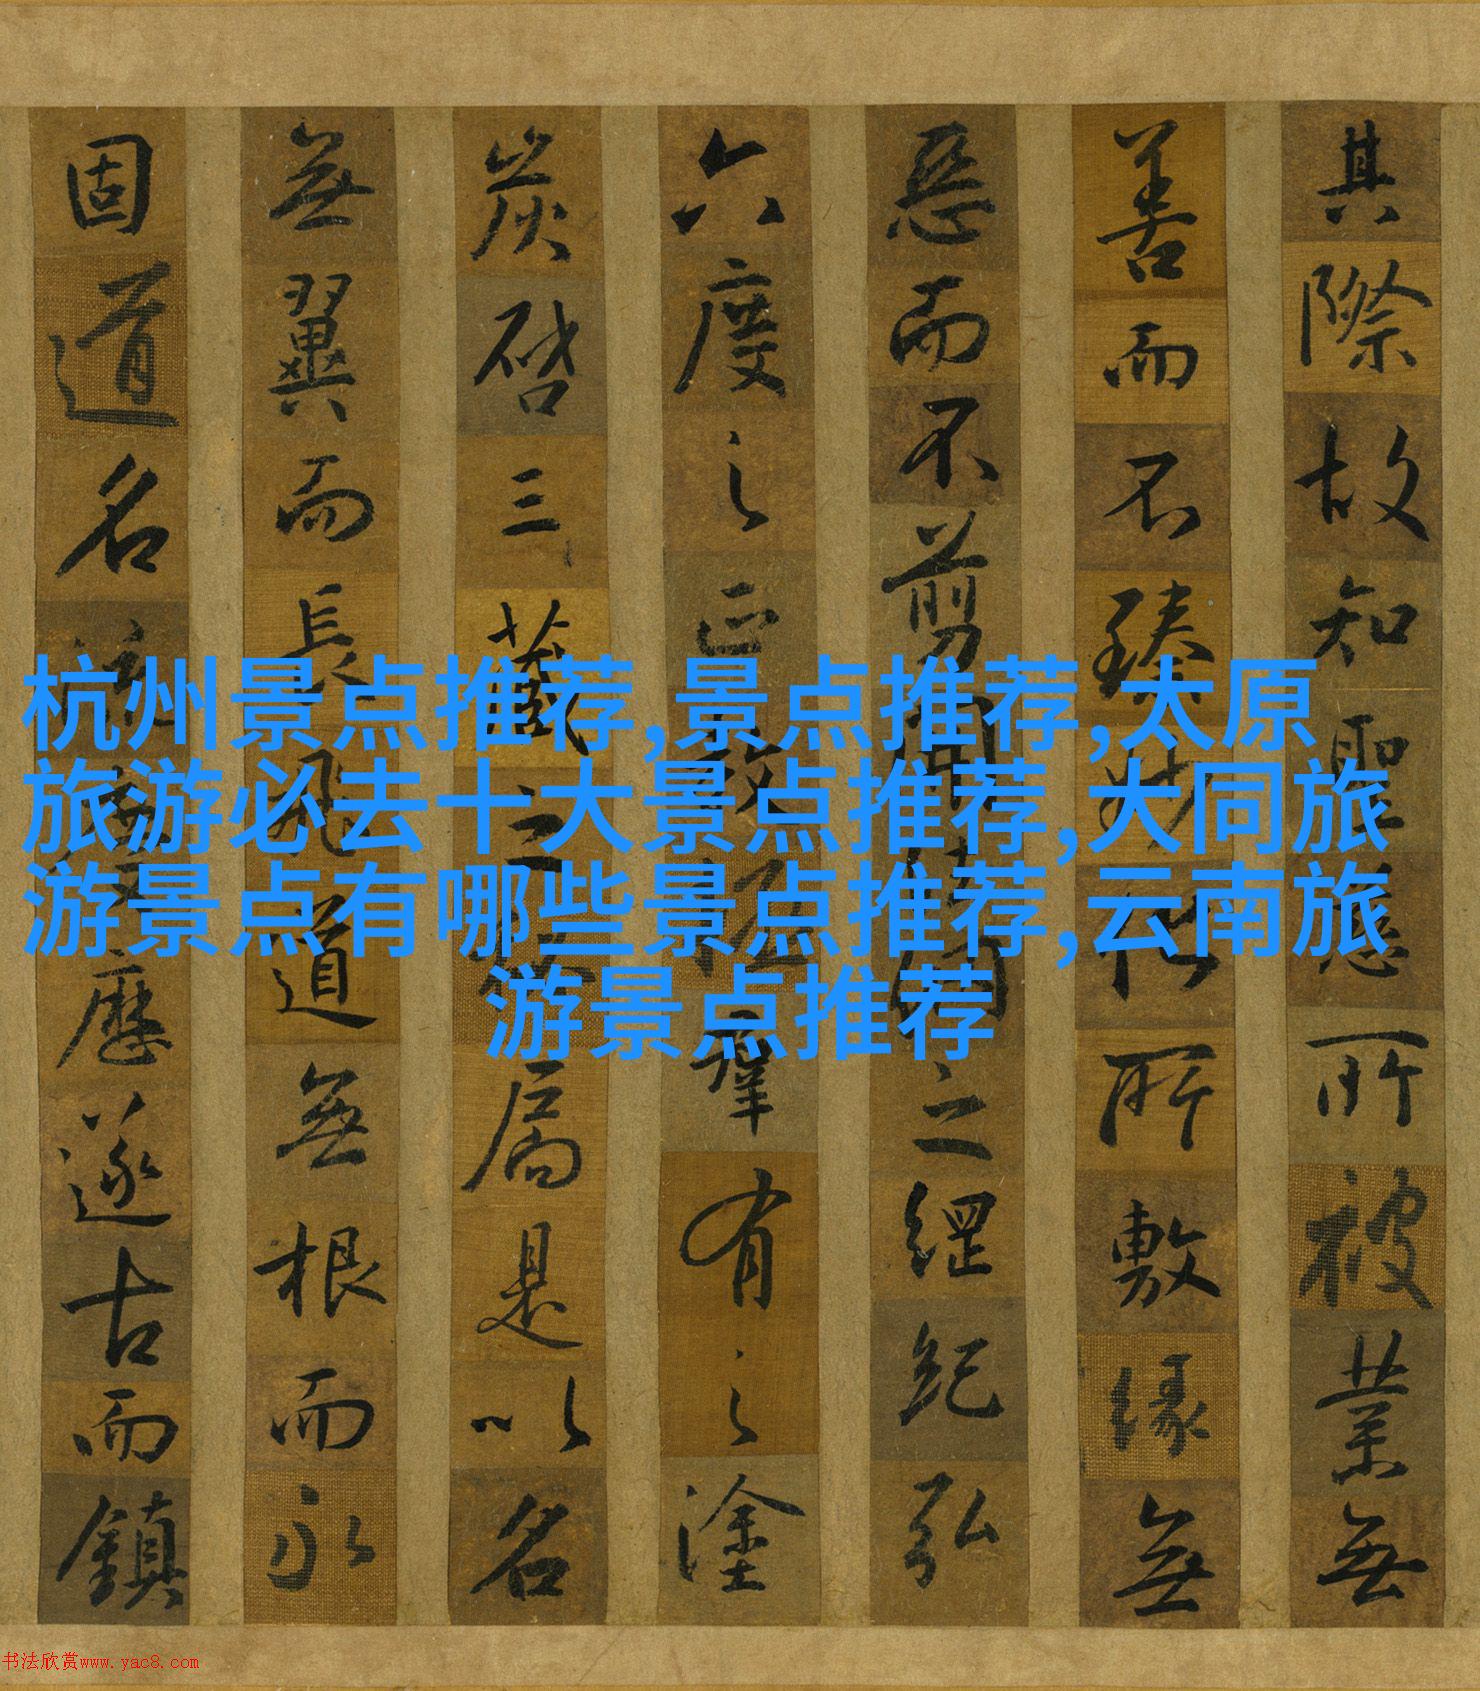 杭州景点推荐,景点推荐,太原
旅游必去十大景点推荐,大同旅
游景点有哪些景点推荐,云南旅
游景点推荐
其際故知聖慈所被業無
善而不臻妙化所敷緣無
惡而不剪開法網之綱紀弘
六度之正教拯羣有之塗
炭啓三藏之秘扃是以名
無翼而長飛道無根而永
固道名流慶歷遂古而鎮
书法欣赏www.yac8.com